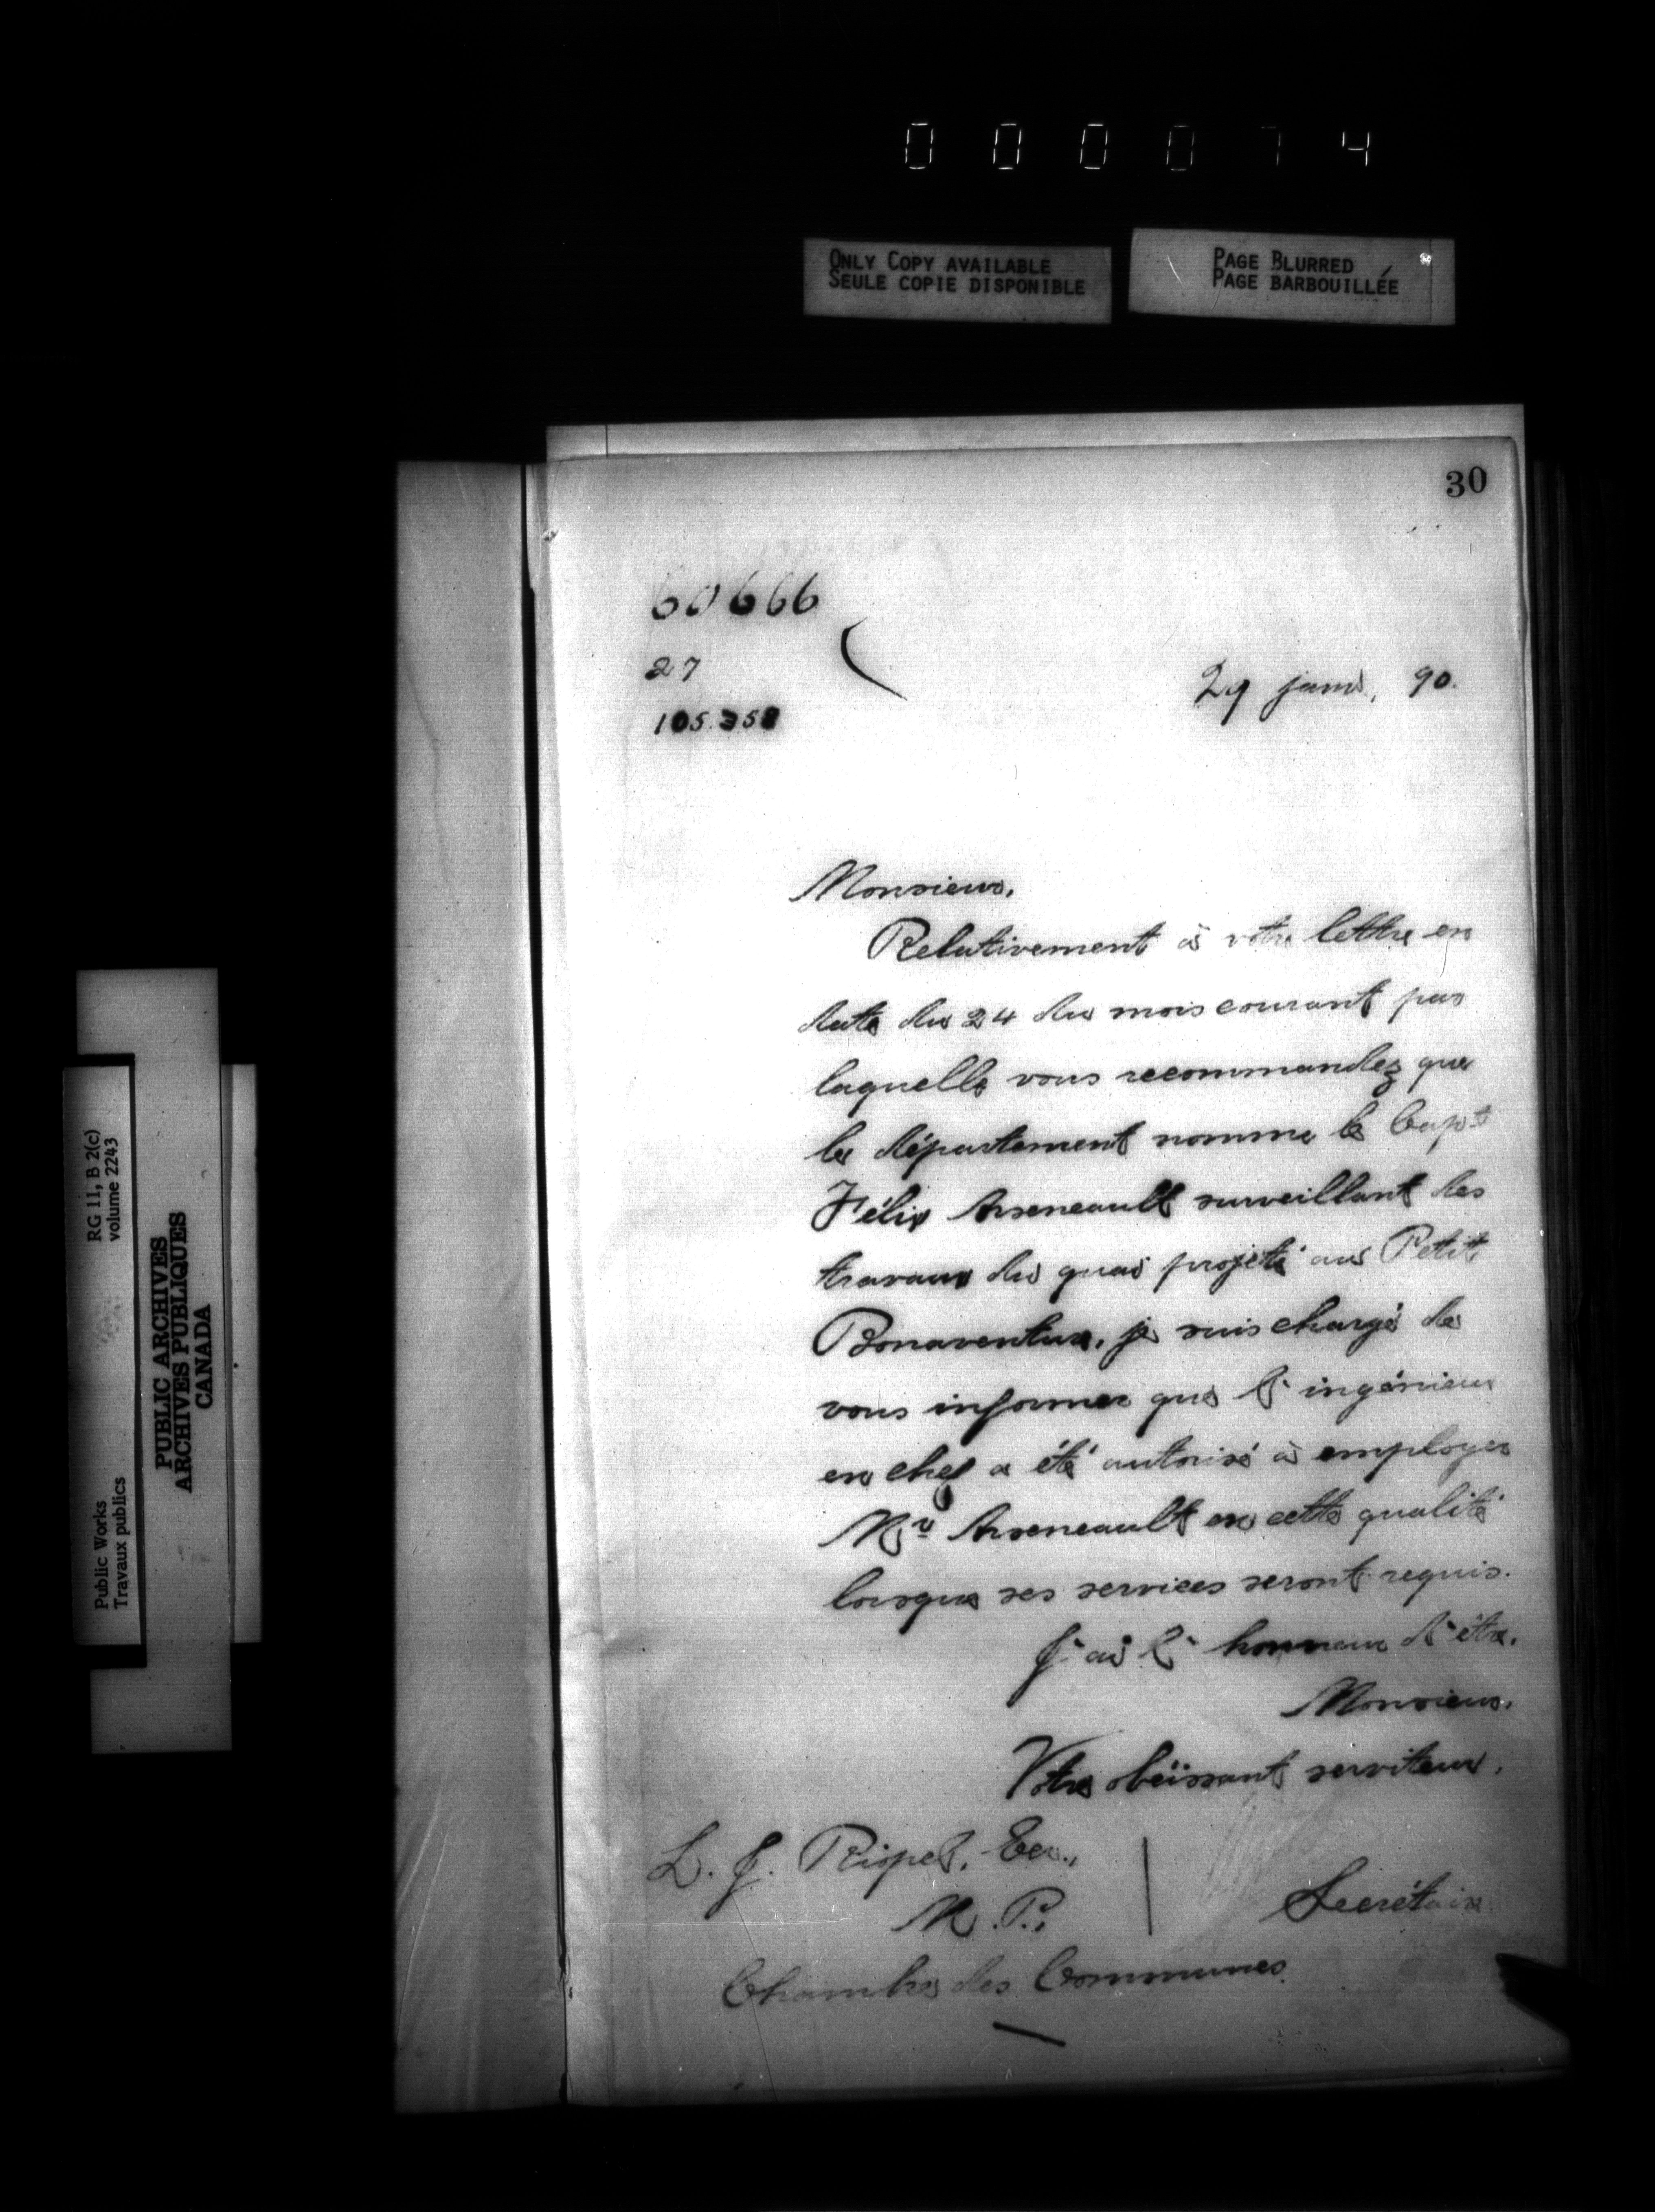 000074
ONLY COPY AVAILABLE
SEULE COPIE DISPONIBLE
PAGE BLURRED
PAGE BARBOUILLÉE
30
60666
27
29 janv. 90.
Monsieur,
Relativement à votre lettre en
date du 24 du mois courant par
laquelle vous recommandez que
le département nomme le Capt
Félix Arseneault surveillant des
travaux du quai projeté au Petit
Bonaventure, je suis chargé de
vous informer que l'ingénieur
en chef a été autorisé à employer
Mr Arseneault en cette qualité
lorsque ses services seront requis.
J'ai l'honneur d'être,
Monsieur,
Votre obéissant serviteur,
Secrétaire
L. J. Riopel, Ecr.,
M. P.,
Chambre des Communes.
RG 11, B 2(c)
volume 2243
Public Works
Travaux publics
PUBLIC ARCHIVES
ARCHIVES PUBLIQUES
CANADA